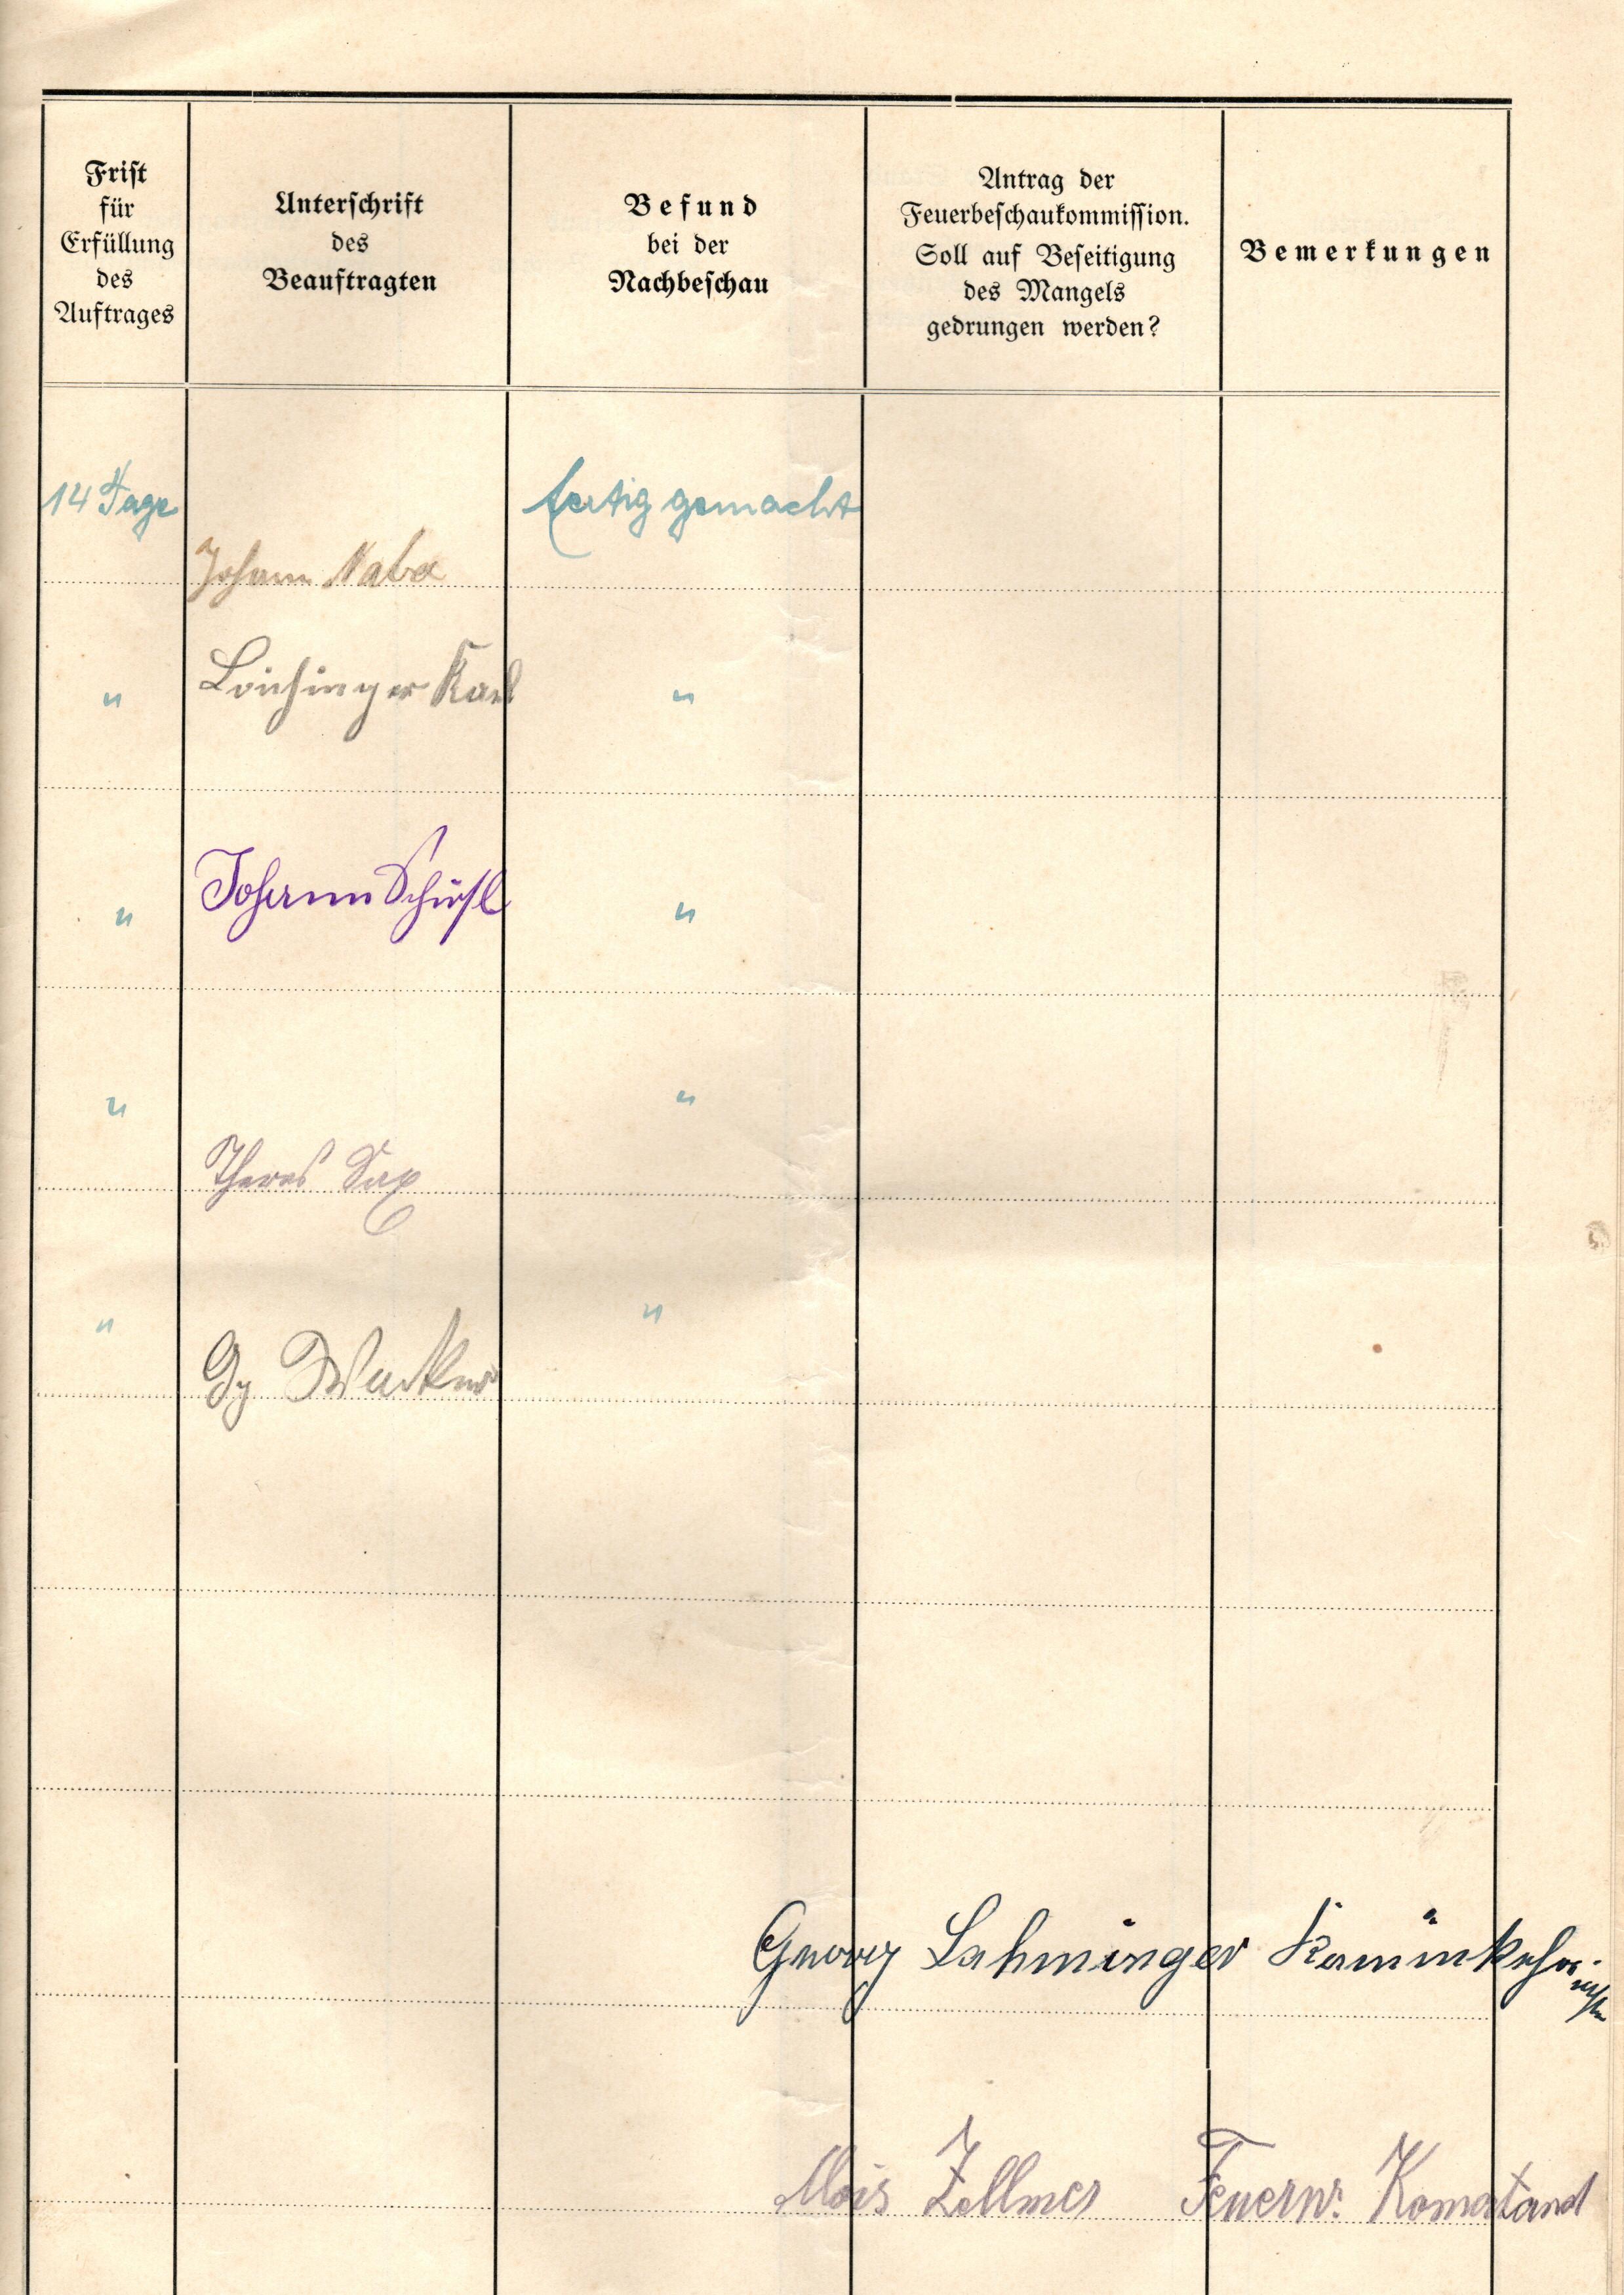 Frist
für
Erfüllung
des
Auftrages
Unterschrift
des
Beauftragten
Befund
bei der
Nachbeschau
Antrag der
Feuerbeschaukommission.
Soll auf Beseitigung
des Mangels
gedrungen werden?
Bemerkungen
14 Tage
fertig gemacht
Johann
" Loichinger Karl "
" Johann "
" "
Theres Sax
" "
Gg.
Georg Lahminger
Alois Zellmer Feuerw. Komatand